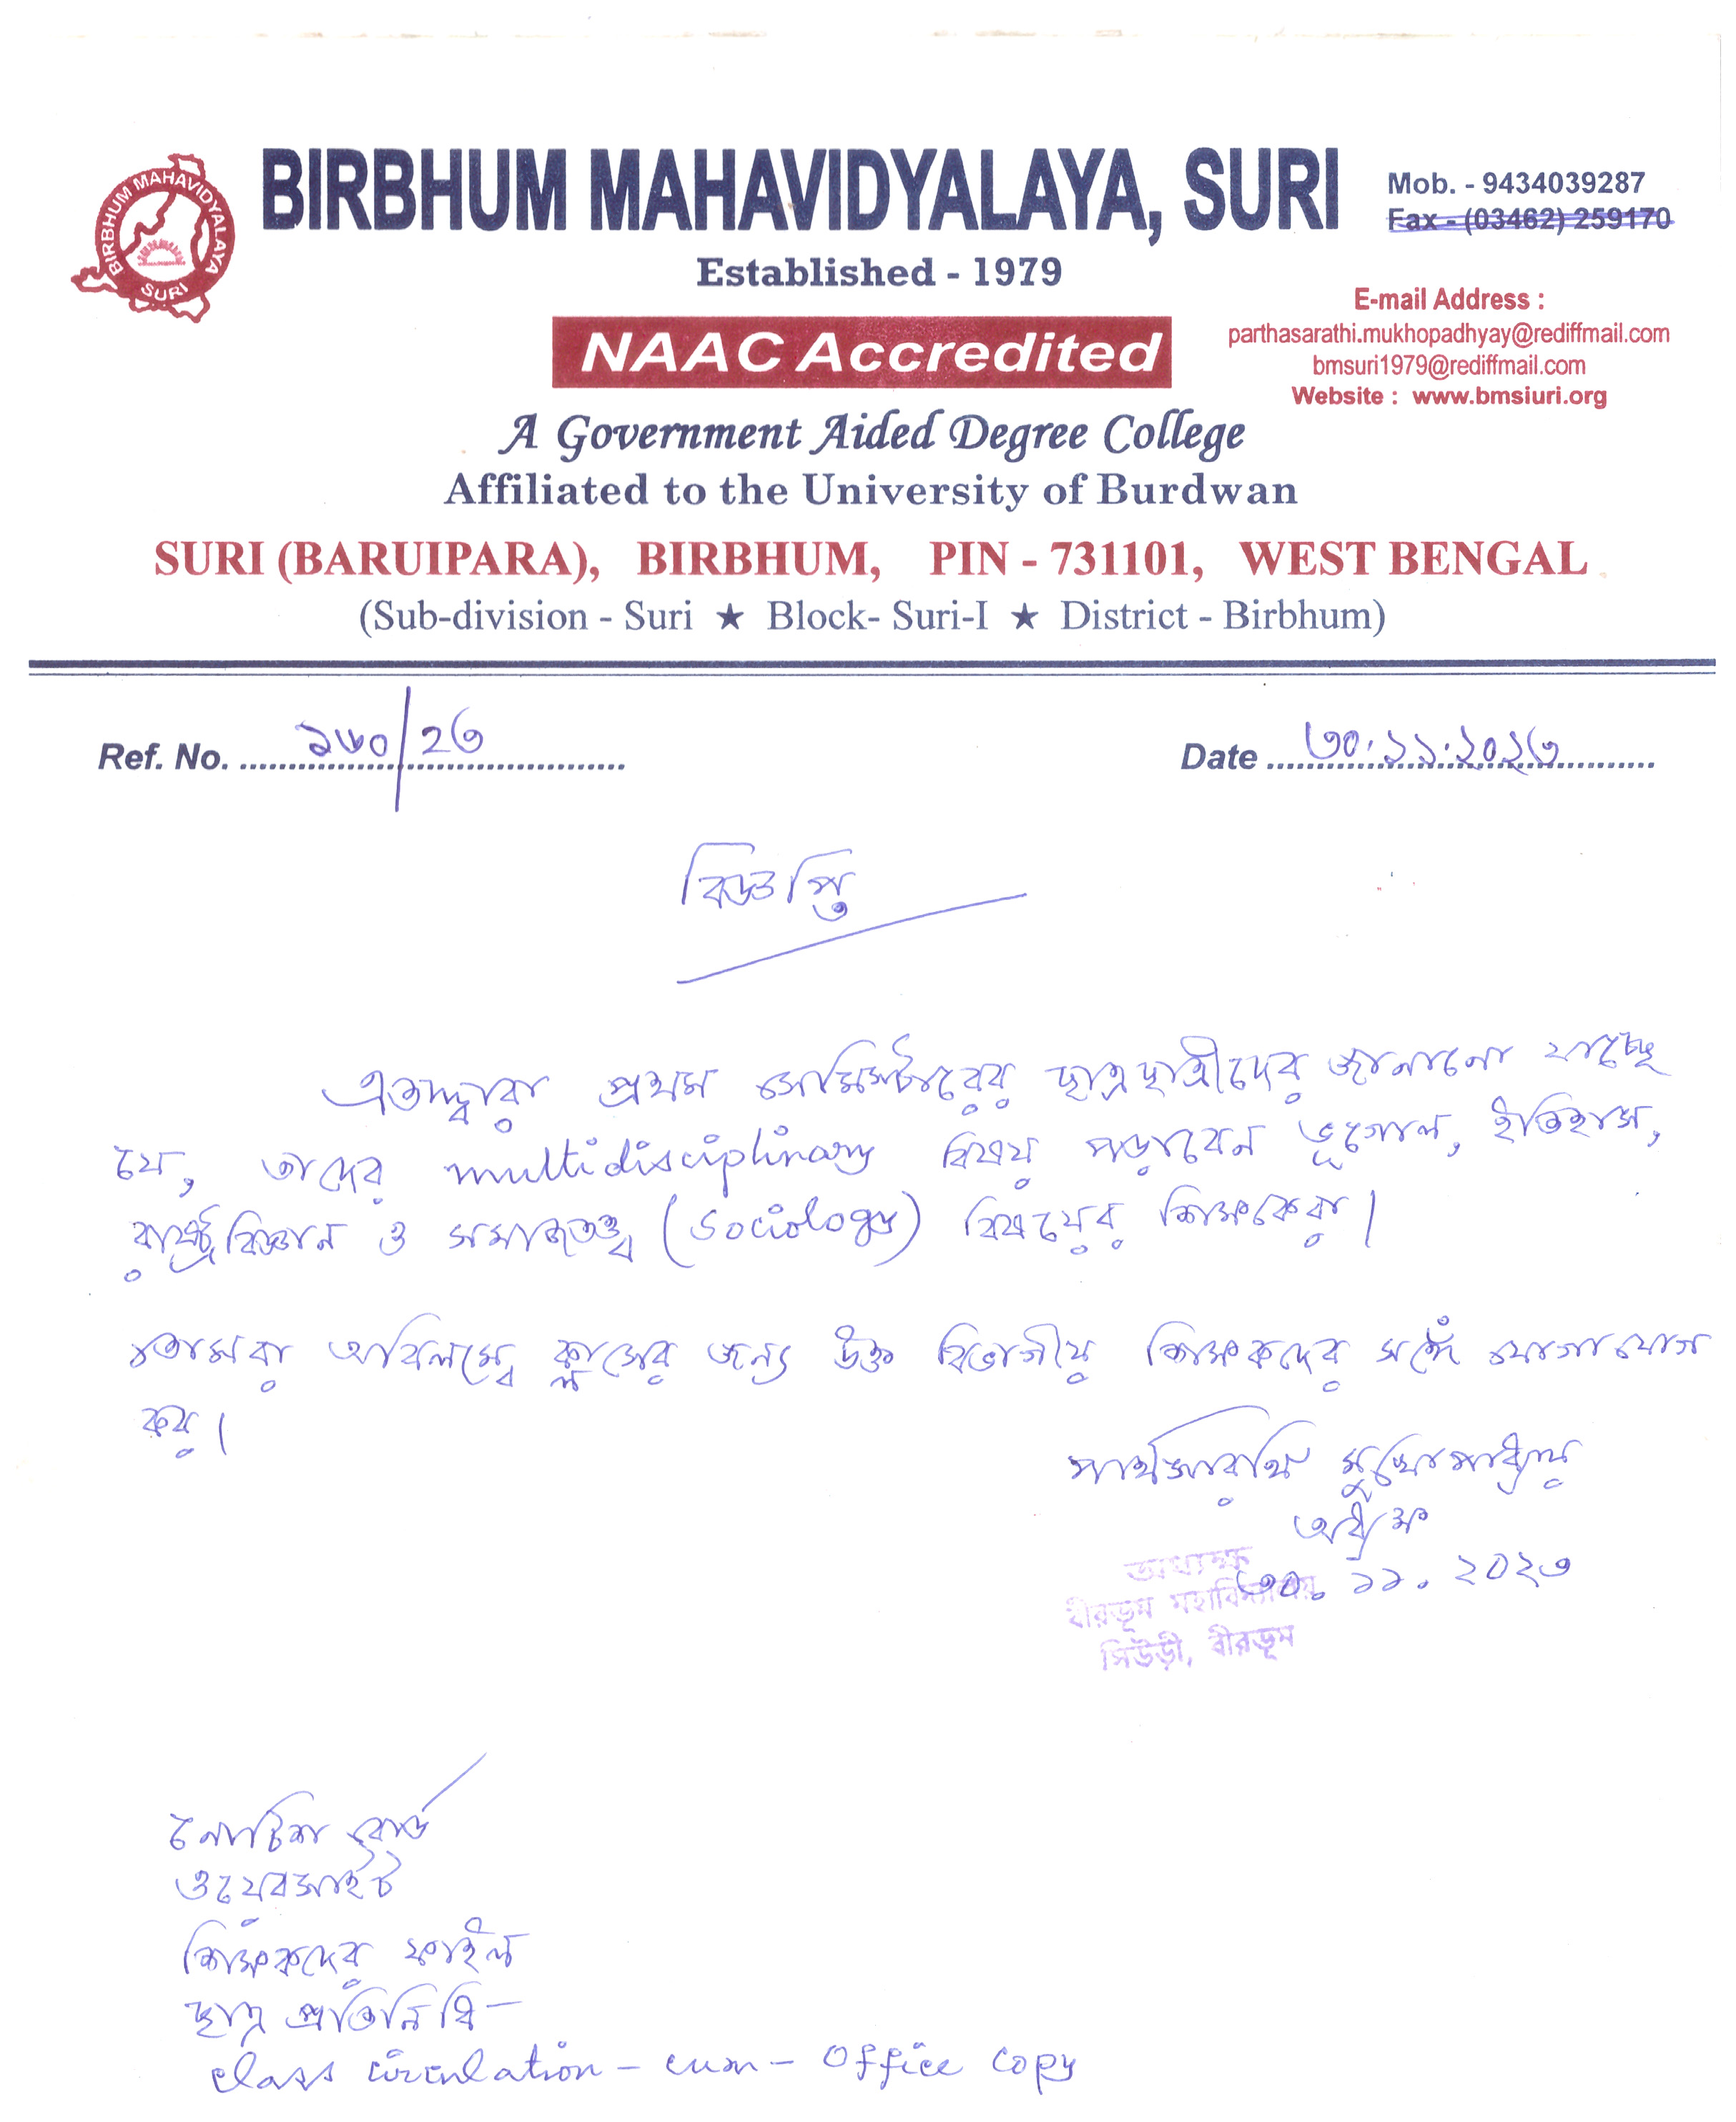 BIRBHUM MAHAVIDYALAYA, SURI
BIRBHUM MAHAVIDYALAYA
SURI
Mob. - 9434039287
Fax - (03462) 259170
Established - 1979
NAAC Accredited
E-mail Address :
parthasarathi.mukhopadhyay@rediffmail.com
bmsuri1979@rediffmail.com
Website : www.bmsiuri.org
A Government Aided Degree College
Affiliated to the University of Burdwan
SURI (BARUIPARA), BIRBHUM, PIN - 731101, WEST BENGAL
(Sub-division - Suri ★ Block- Suri-I ★ District - Birbhum)
Ref. No.
Date ৩০.১১.২০২৩
বিজ্ঞপ্তি
এতদ্দ্বারা প্রথম সেমিস্টারের ছাত্রছাত্রীদের জানানো যাচ্ছে
যে, তাদের multidisciplinary বিষয় পড়াবেন ভূগোল, ইতিহাস,
রাষ্ট্রবিজ্ঞান ও সমাজতত্ত্ব (Sociology) বিষয়ের শিক্ষকেরা।
তোমরা অবিলম্বে ক্লাসের জন্য উক্ত বিভাগীয় শিক্ষকদের সঙ্গে যোগাযোগ
কর।
পার্থসারথি মুখোপাধ্যায়
অধ্যক্ষ
৩০. ১১. ২০২৩
অধ্যক্ষ
বীরভূম মহাবিদ্যালয়
সিউড়ী, বীরভূম
নোটিশ বোর্ড
ওয়েবসাইট
শিক্ষকদের ফাইল
ছাত্র প্রতিনিধি
class circulation - cum - Office copy